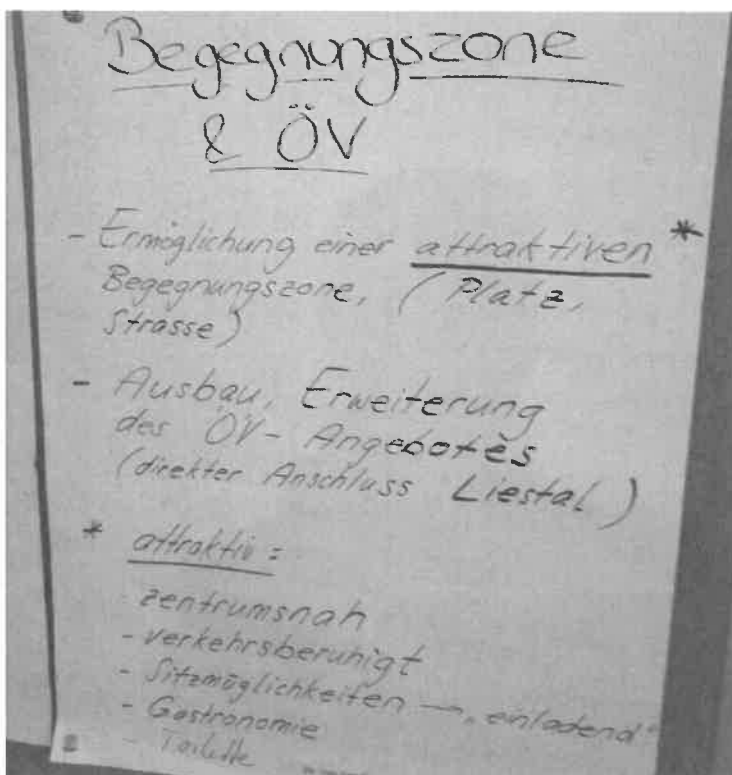 Begegnungszone
& ÖV
- Ermöglichung einer attraktiven *
Begegnungszone, (Platz,
Strasse)
- Ausbau, Erweiterung
des ÖV-Angebotes
(direkter Anschluss Liestal)
* attraktiv:
- zentrumsnah
- verkehrsberuhigt
- Sitzmöglichkeiten → „einladend“
- Gastronomie
- Toilette